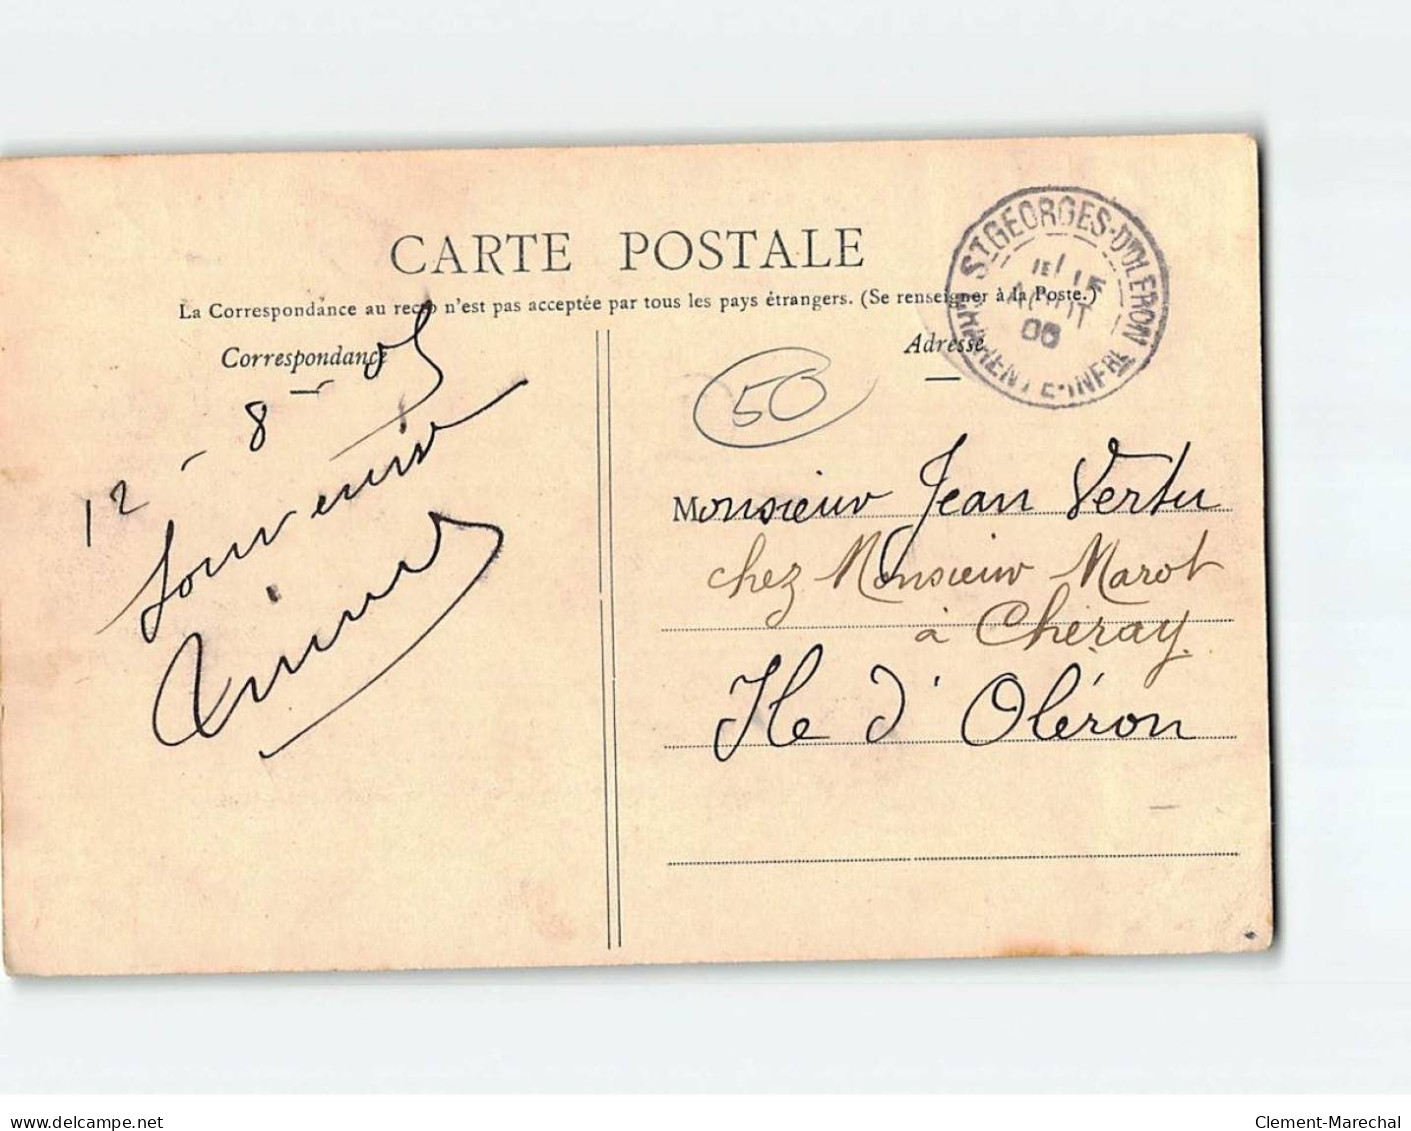 CARTE POSTALE
La Correspondance au recto n'est pas acceptée par tous les pays étrangers. (Se renseigner à la Poste.)
Correspondance
Adresse
ST GEORGES-D'OLERON
AOUT
CHARENTE-INFRE
50
12 - 8 - 05
Monsieur Jean Vertu
chez Monsieur Marot
à Cheray
Ile d'Oléron
delcampe.net
Clement-Marechal